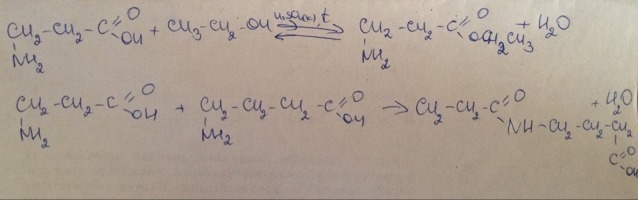 CH₂-CH₂-C=O OH + CH₃-CH₂-OH H₂SO₄(к), t ⇌ CH₂-CH₂-C=O OCH₂CH₃ + H₂O
NH₂ NH₂
CH₂-CH₂-C=O OH + CH₂-CH₂-CH₂-C=O OH → CH₂-CH₂-C=O NH-CH₂-CH₂-CH₂ + H₂O
NH₂ NH₂ C=O OH